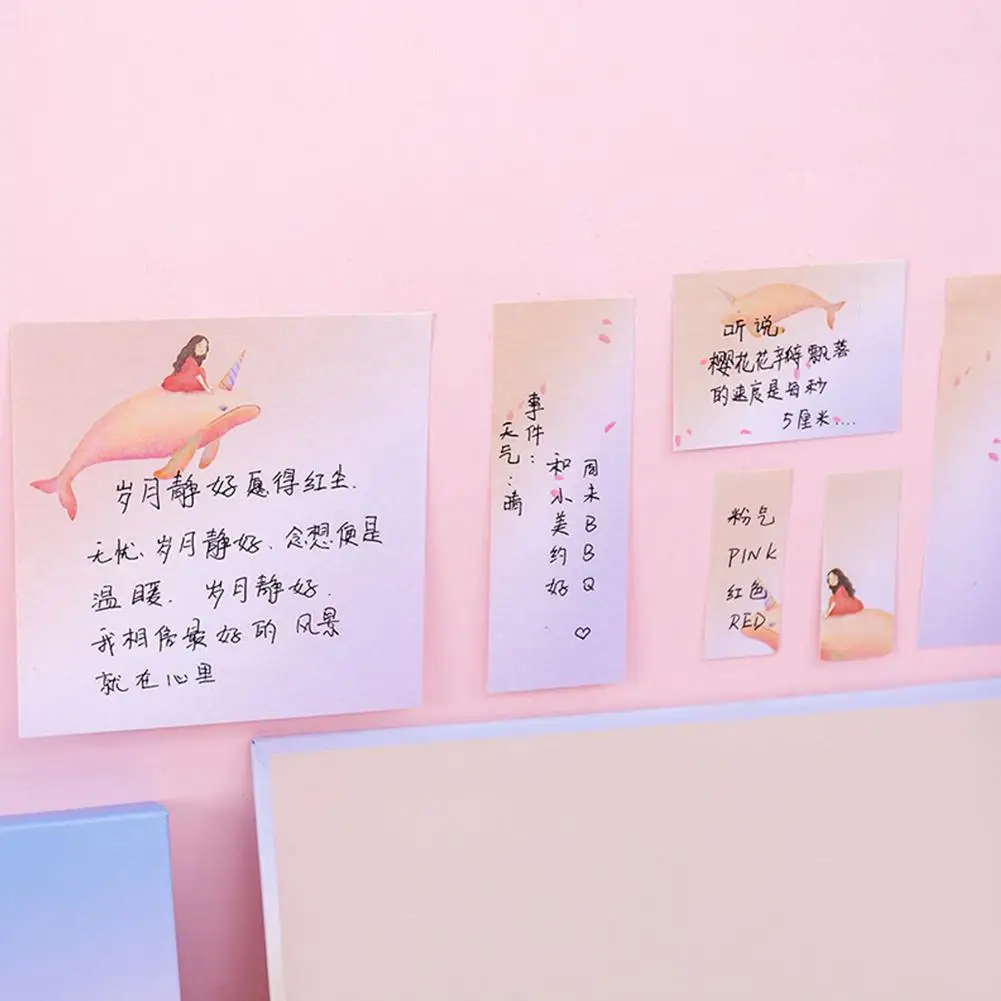 岁月静好愿得红尘.
无忧、岁月静好.念想便是
温暖. 岁月静好.
我相信最好的风景
就在心里
事件:
天气:晴
周末BBQ
和小美约好♡
听说,
樱花花瓣飘落
的速度是每秒
5厘米....
粉气
PINK
红色
RED